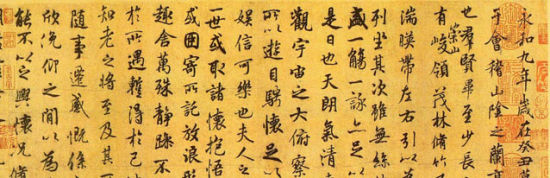 永和九年歲在癸丑
于會稽山陰之蘭亭
也群賢畢至少長咸
有崇山峻領茂林脩竹
湍暎帶左右引以為
列坐其次雖無絲竹
盛一觴一詠亦足以
是日也天朗氣清
觀宇宙之大俯察
所以遊目騁懷足以
娛信可樂也夫人之
一世或取諸懷抱悟
或因寄所託放浪形
趣舍萬殊靜躁不
於所遇暫得於己
知老之將至及其
隨事遷感慨係
欣俛仰之間以為
能不以之興懷況